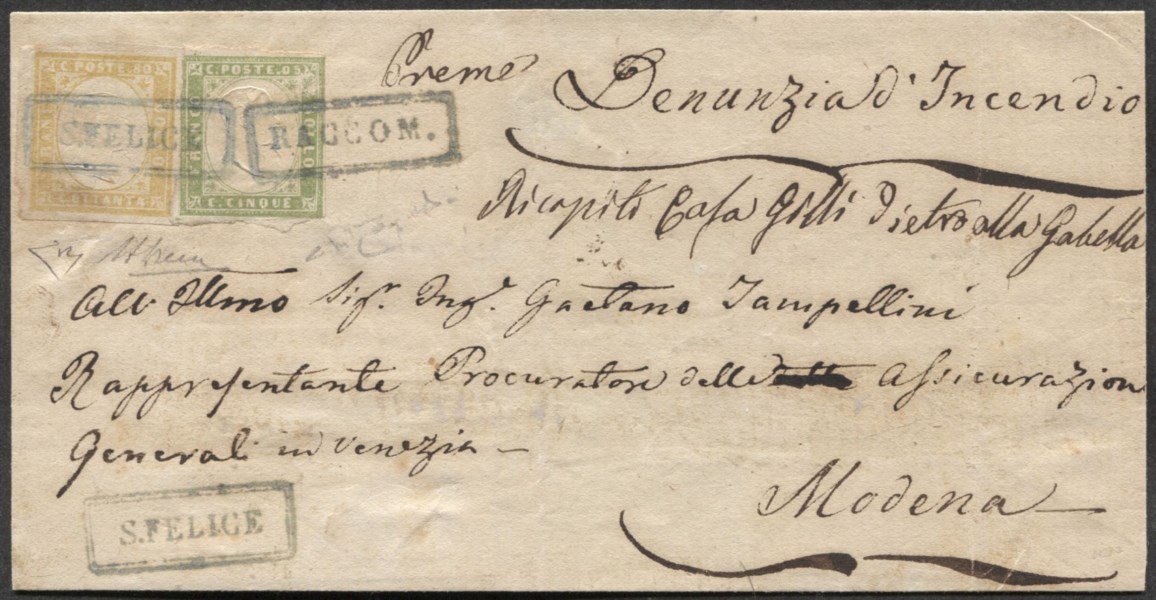 C. POSTE. 80
C. OTTANTA
C. POSTE. 05
C. CINQUE
FRANCO
BOLLO
S. FELICE
RACCOM.
Preme
Denunzia d'Incendio
Ricapito Casa Gilli Pietro alla Gabella
All' Illmo Sigr. Ingr. Gaetano Zampellini
Rappresentante Procuratore delle Assicurazion
Generali in Venezia -
Modena
S. FELICE